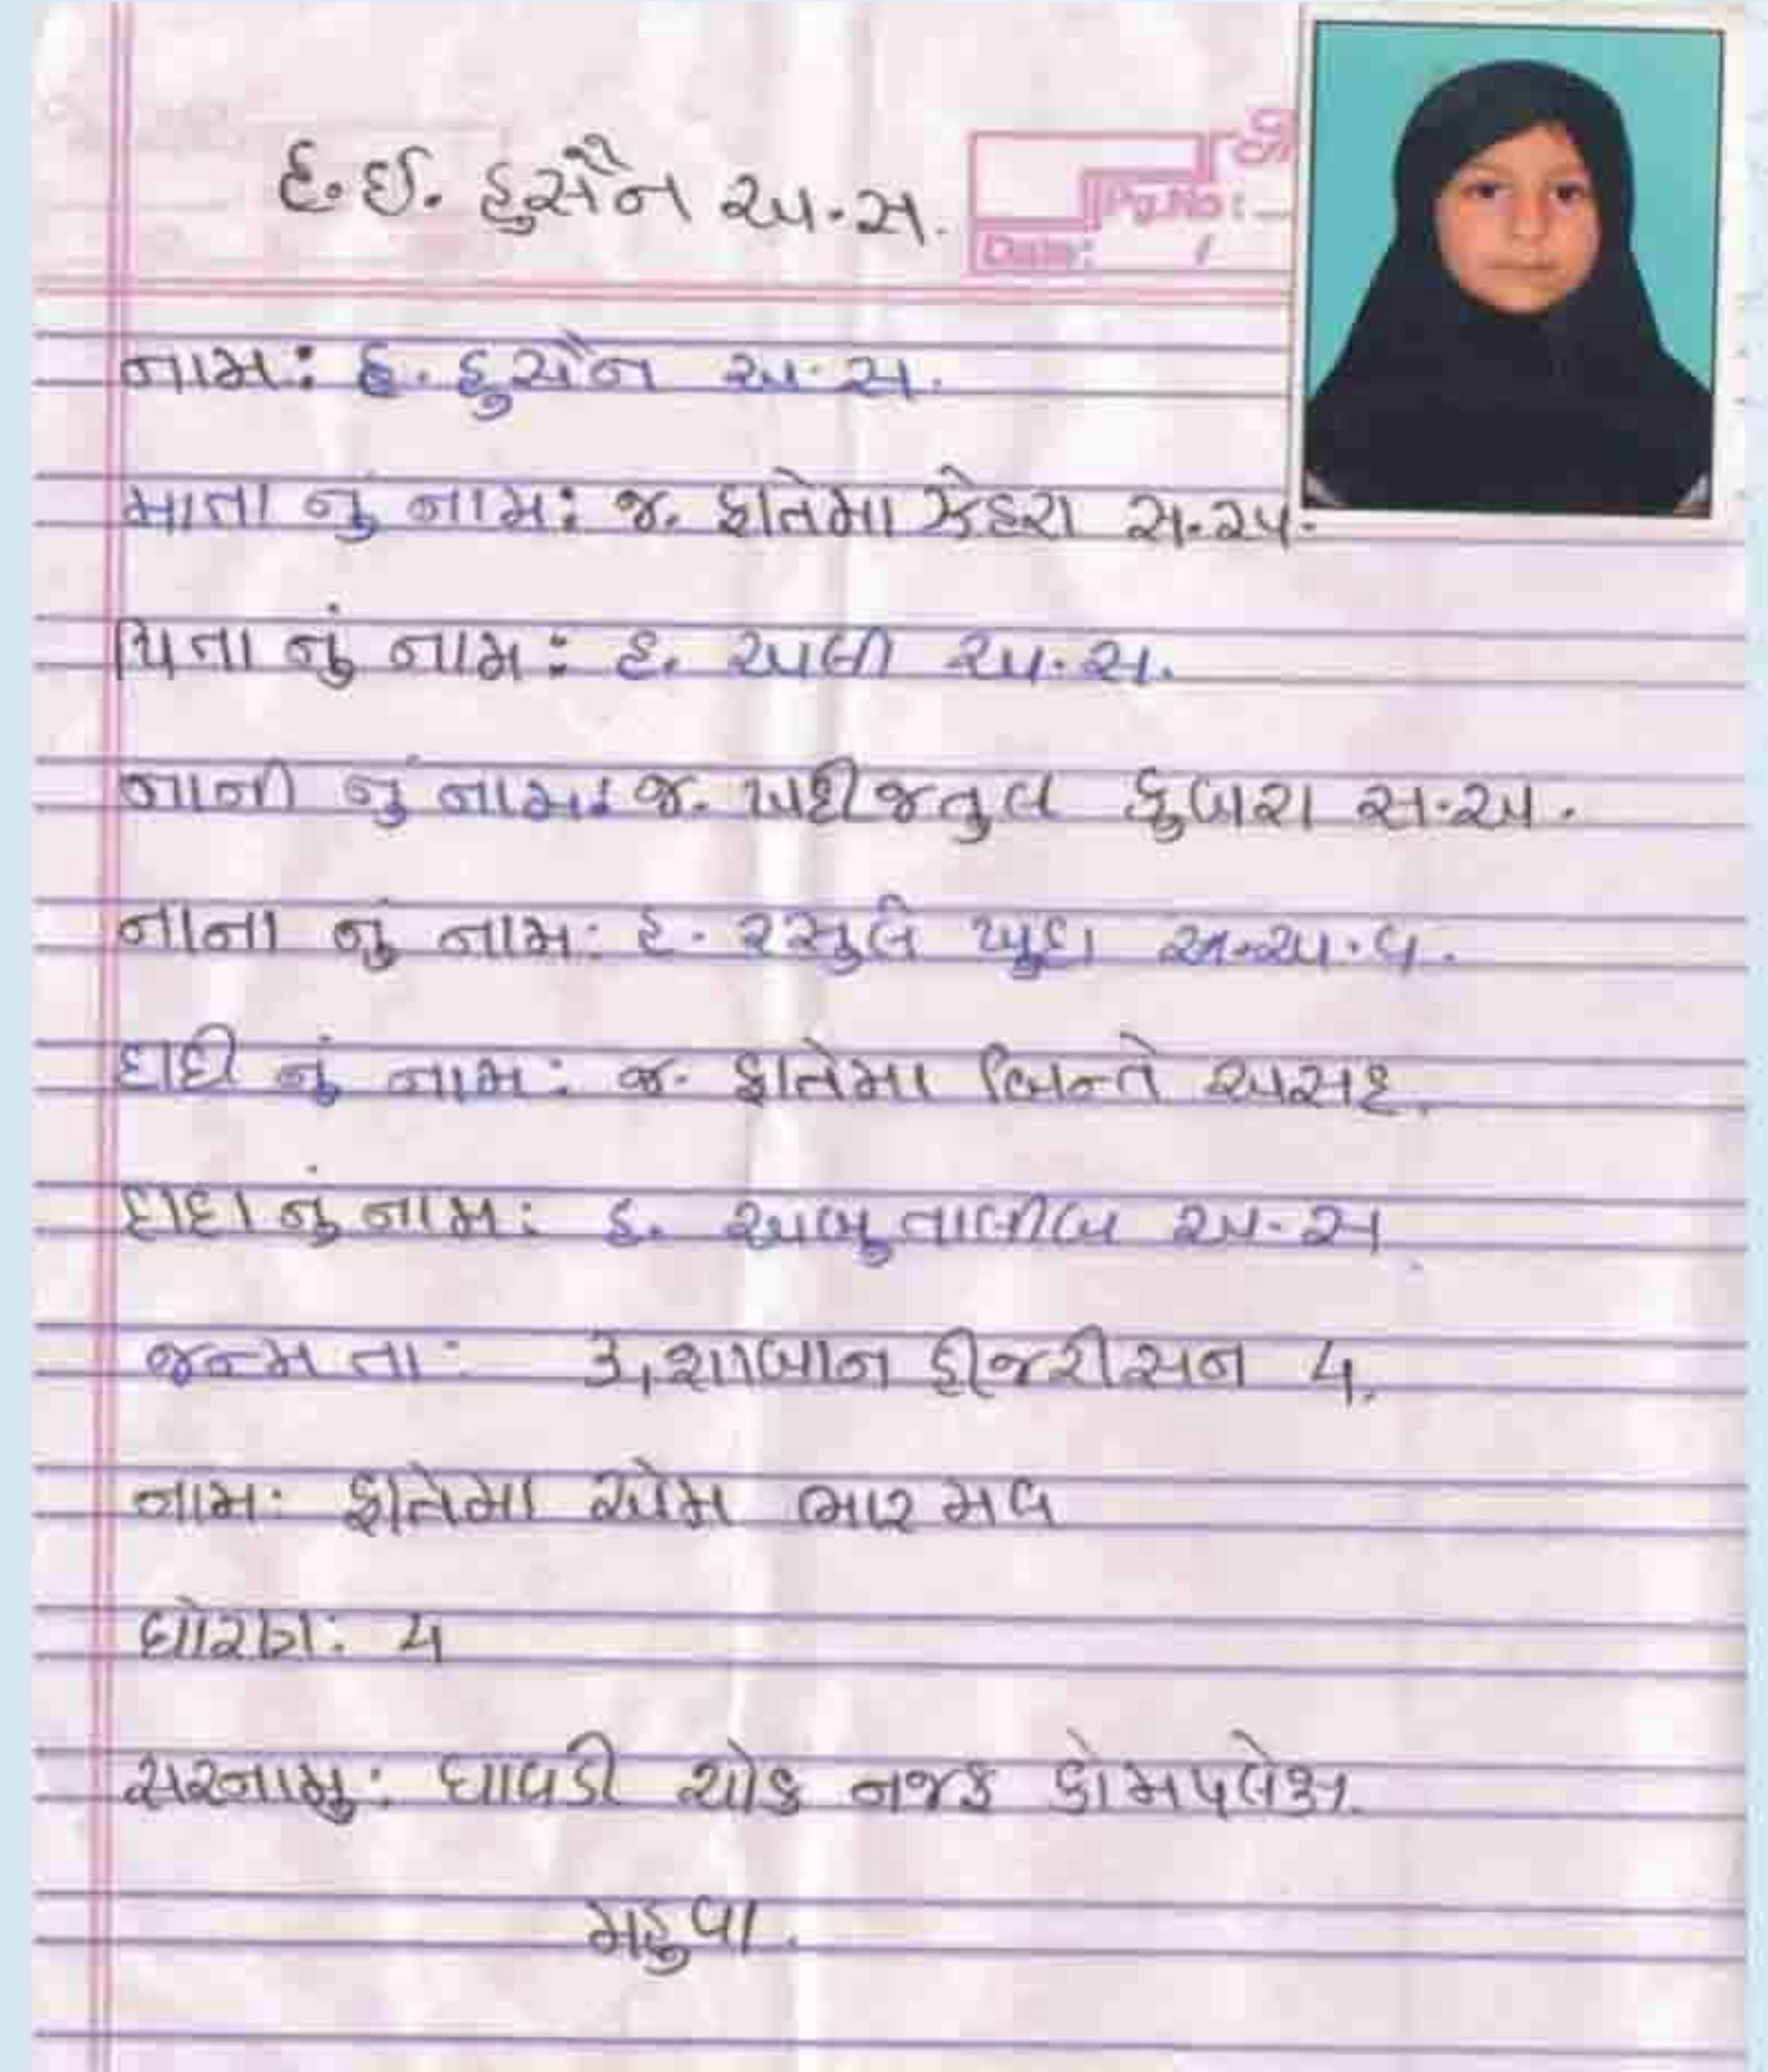 હ.ઈ. હુસૈન અ.સ.
Pg.No:
Date: /
નામ: હ. હુસૈન અ.સ.
માતા નું નામ: જ. ફાતેમા ઝેહરા સ.અ.
પિતા નું નામ: હ. અલી અ.સ.
નાની નું નામ: જ. ખદીજતુલ કુબરા સ.અ.
નાના નું નામ: હ. રસુલે ખુદા સ.અ.વ.
દાદી નું નામ: જ. ફાતેમા બિન્તે અસદ.
દાદા નું નામ: હ. અબુ તાલીબ અ.સ.
જન્મ તા: ૩,શાબાન હીજરીસન ૪.
નામ: ફાતેમા એમ ભારમલ
ધોરણ: ૫
સરનામુ: ઘાવડી ચોક નજફ કોમપલેક્ષ.
મહુવા.